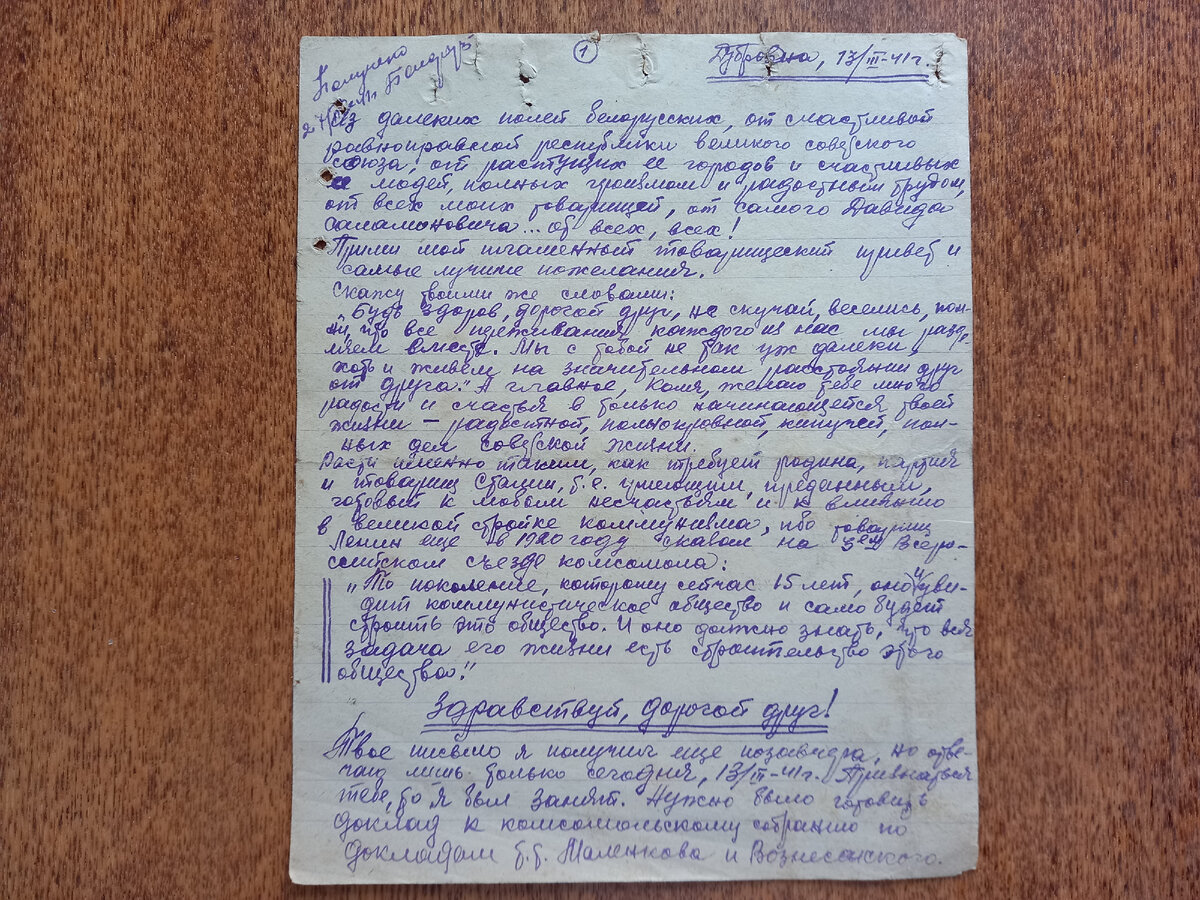 1
Дубровна, 13/III-41г.
Из далеких полей белорусских, от счастливой
равноправной республики великого советского
союза, от растущих ее городов и счастливых
ее людей, полных героизмом и радостным трудом,
от всех моих товарищей, от самого Давида
Саламоновича... от всех, всех!
Прими мой пламенный товарищеский привет и
самые лучшие пожелания.
Скажу твоими же словами:
„Будь здоров, дорогой друг, не скучай, веселись, пом-
ни, что все переживания каждого из нас мы разде-
ляем вместе. Мы с тобой не так уж далеки,
хоть и живем на значительном расстоянии друг
от друга." А главное, Коля, желаю тебе много
радости и счастья в только начинающейся твоей
жизни – радостной, полнокровной, кипучей, пол-
ных дел советской жизни.
Расти именно таким, как требует родина, партия
и товарищ Сталин, т.е. умеющим, преданным,
готовый к любым несчастьям и к
в великой стройке коммунизма, ибо товарищ
Ленин еще в 1920 году сказал на 3ем Всерос-
сийском съезде комсомола:
„То поколение, которому сейчас 15 лет, оно и уви-
дит коммунистическое общество и само будет
строить это общество. И оно должно знать, что вся
задача его жизни есть строительство этого
общества".
Здравствуй, дорогой друг!
Твое письмо я получил еще позавчера, но отве-
чаю лишь только сегодня, 13/III-41г. Признаться
тебе, то я был занят. Нужно было готовить
доклад к комсомольскому собранию по
докладам т.т. Маленкова и Вознесенского.